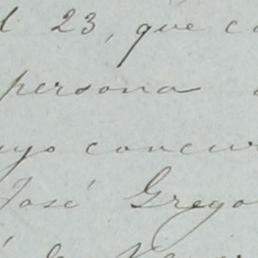 23, que
persona
concur
José Grego